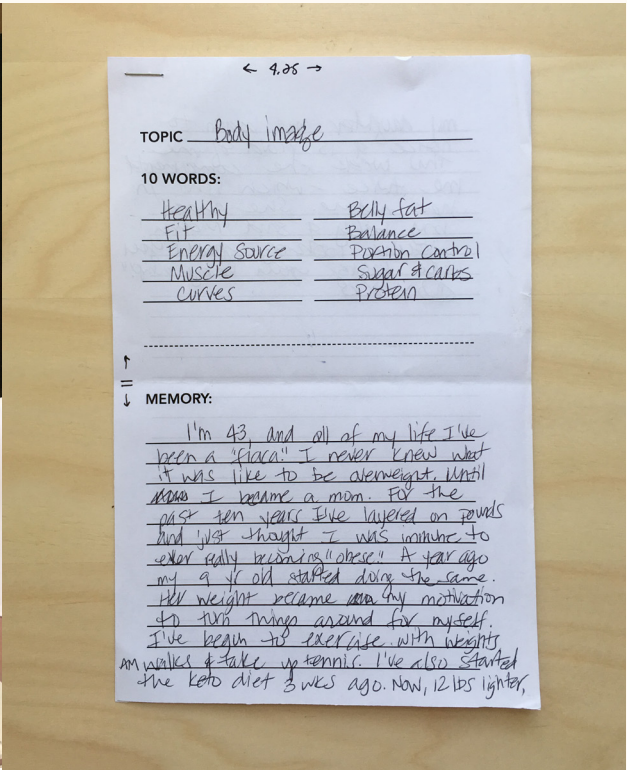 ← 4.25 →
TOPIC Body image
10 WORDS:
Healthy Belly fat
Fit Balance
Energy Source Portion Control
Muscle Sugar & carbs
Curves Protein
↑
=
↓
MEMORY:
I'm 43, and all of my life I've
been a "flaca." I never knew what
it was like to be overweight. Until
I became a mom. For the
past ten years I've layered on pounds
and just thought I was immune to
ever really becoming "obese." A year ago
my 9 yr old started doing the same.
Her weight became my motivation
to turn things around for myself.
I've begun to exercise with weights
AM walks & take up tennis. I've also started
the keto diet 3 wks ago. Now, 12 lbs lighter,